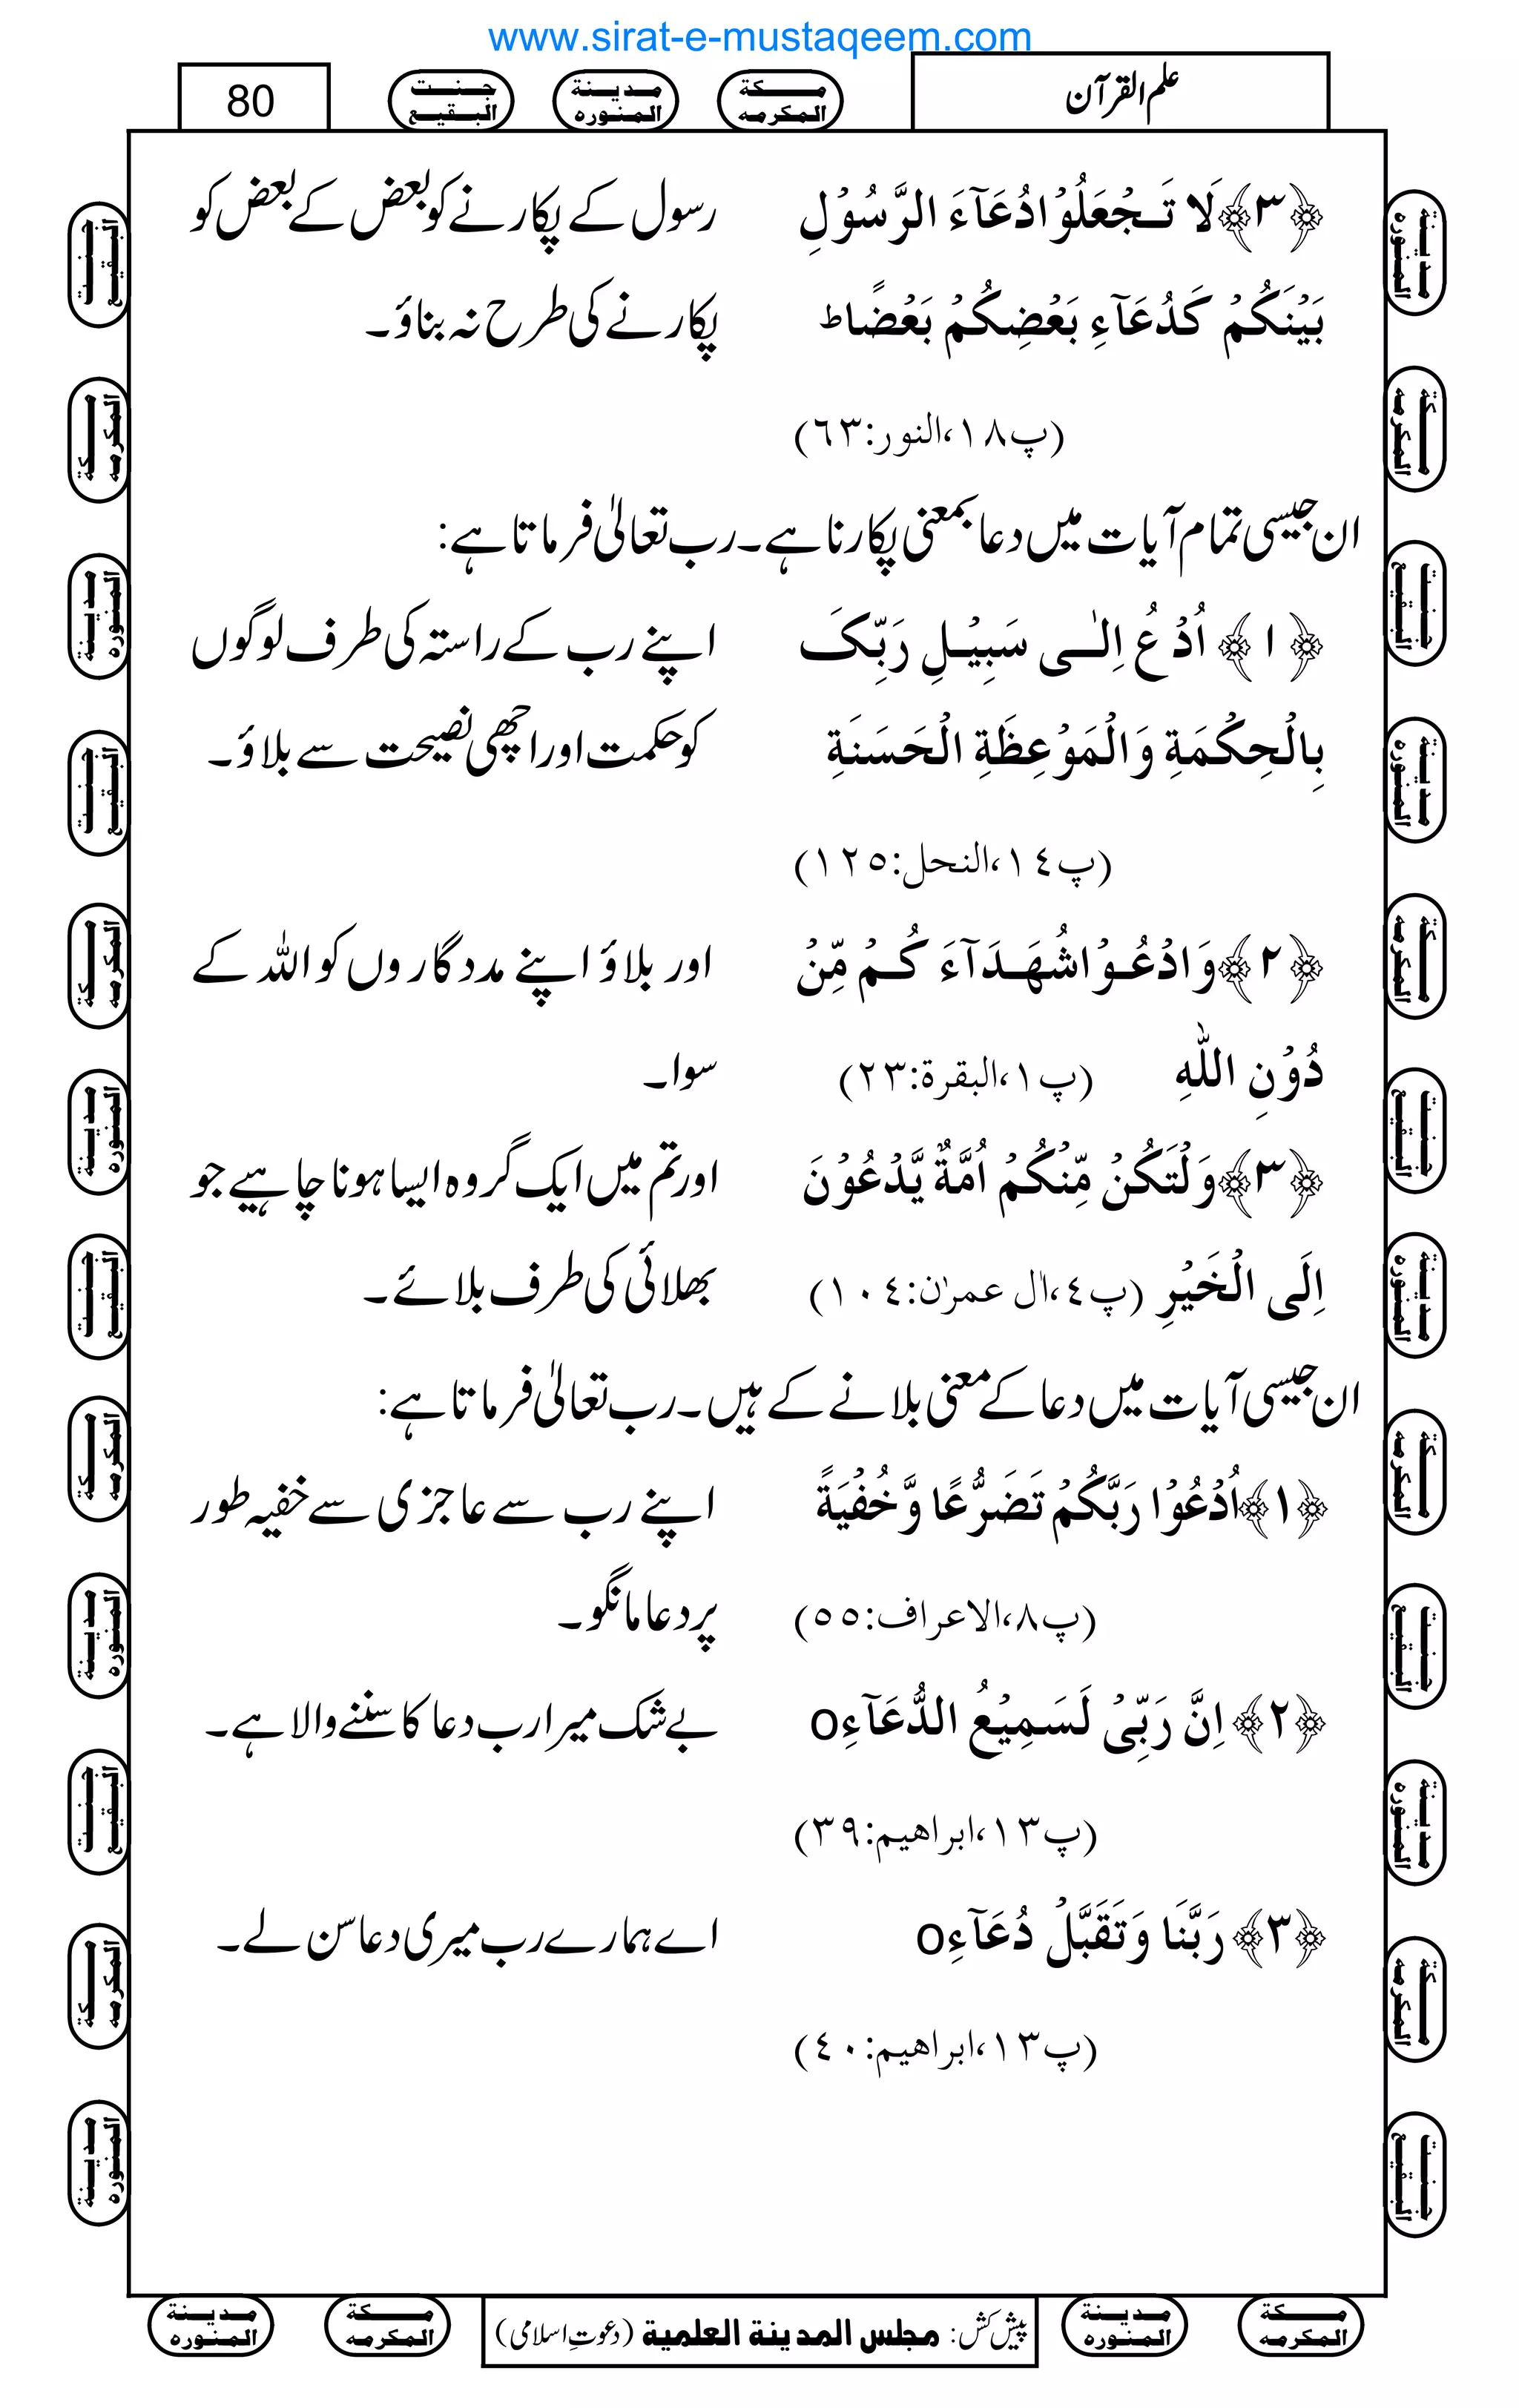 www.sirat-e-mustaqeem.com
علم القرآن
مکة المکرمه
مدینة المنوره
جنت البقیع
80
﴿۳﴾ لَا تَجْعَلُوْا دُعَآءَ الرَّسُوْلِ رسول کے پکارنے کو بعض کے بعض کو
بَیْنَکُمْ کَدُعَآءِ بَعْضِکُمْ بَعْضًا ط پکارنے کی طرح نہ بناؤ۔
(پ۱۸،النور:۶۳)
ان جیسی تمام آیات میں دعا بمعنی پکارنا ہے۔ رب تعالیٰ فرماتا ہے:
﴿۱﴾ اُدْعُ اِلٰی سَبِیْلِ رَبِّکَ اپنے رب کے راستہ کی طرف لوگوں
بِالْحِکْمَةِ وَالْمَوْعِظَةِ الْحَسَنَةِ کو حکمت اور اچھی نصیحت سے بلاؤ۔
(پ۱۴،النحل:۱۲۵)
﴿۲﴾ وَادْعُوْا شُهَدَآءَ کُمْ مِّنْ اور بلاؤ اپنے مددگاروں کو اللہ کے
دُوْنِ اللّٰهِ (پ۱،البقرة:۲۳) سوا۔
﴿۳﴾ وَلْتَکُنْ مِّنْکُمْ اُمَّةٌ یَّدْعُوْنَ اور تم میں ایک گروہ ایسا ہونا چاہیے جو
اِلَی الْخَیْرِ (پ۴،اٰل عمرٰن:۱۰۴) بھلائی کی طرف بلائے۔
ان جیسی آیات میں دعا کے معنی بلانے کے ہیں۔ رب تعالیٰ فرماتا ہے:
﴿۱﴾ اُدْعُوْا رَبَّکُمْ تَضَرُّعًا وَّ خُفْیَةً اپنے رب سے عاجزی سے خفیہ طور
(پ۸،الاعراف:۵۵) پر دعا مانگو۔
﴿۲﴾ اِنَّ رَبِّیْ لَسَمِیْعُ الدُّعَآءِo بے شک میرا رب دعا کا سننے والا ہے۔
(پ۱۳،ابراهیم:۳۹)
﴿۳﴾ رَبَّنَا وَتَقَبَّلْ دُعَآءِo اے ہمارے رب میری دعا سن لے۔
(پ۱۳،ابراهیم:۴۰)
مکة المکرمه
مدینة المنوره
پیش کش: مجلس المدینة العلمیة (دعوتِ اسلامی)
مکة المکرمه
مدینة المنوره